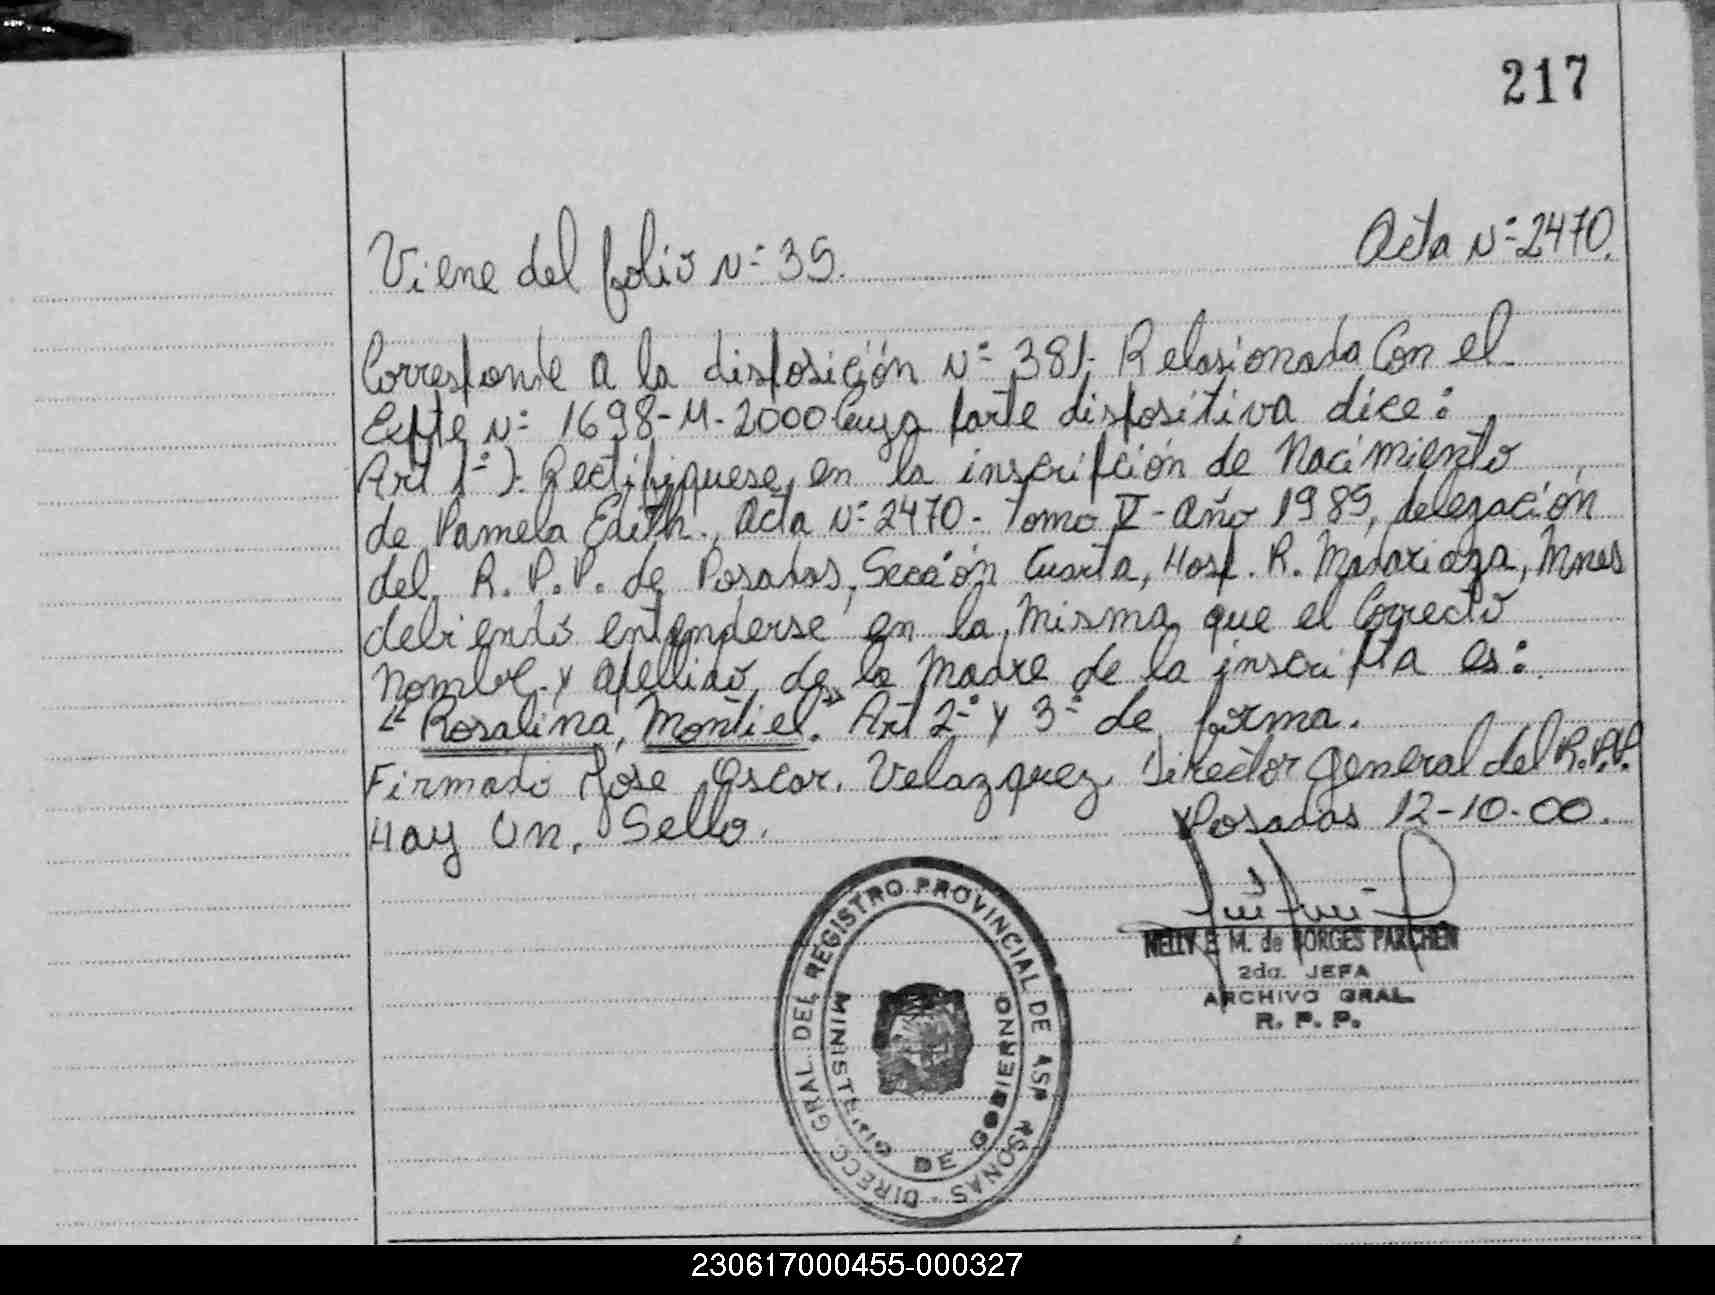 217
Viene del folio N° 35.
Acta N° 2470.
Corresponde a la disposición N° 381. Relasionada Con el
Expte N° 1698-M-2000 Cuya parte dispositiva dice:
Art 1°). Rectifiquese, en la inscripción de Nacimiento
de Pamela Edith., Acta N° 2470- Tomo V- Año 1985, delegación
del R. P. P. de Posadas, Sección Cuarta, Hosp. R. Madariaga, Mnes
debiendo entenderse en la misma que el Correcto
Nombre y apellido, de la Madre de la inscripta es:
"Rosalina, Montiel". Art 2° y 3° de forma.
Firmado Jose Oscar. Velazquez. Director General del R.P.P.
Hay Un, Sello.
Posadas 12-10-00.
NELLY E. M. de BORGES PARCHEN
2da. JEFA
ARCHIVO GRAL.
R. P. P.
DIRECC. GRAL. DEL REGISTRO PROVINCIAL DE
MINISTERIO DE GOBIERNO
230617000455-000327